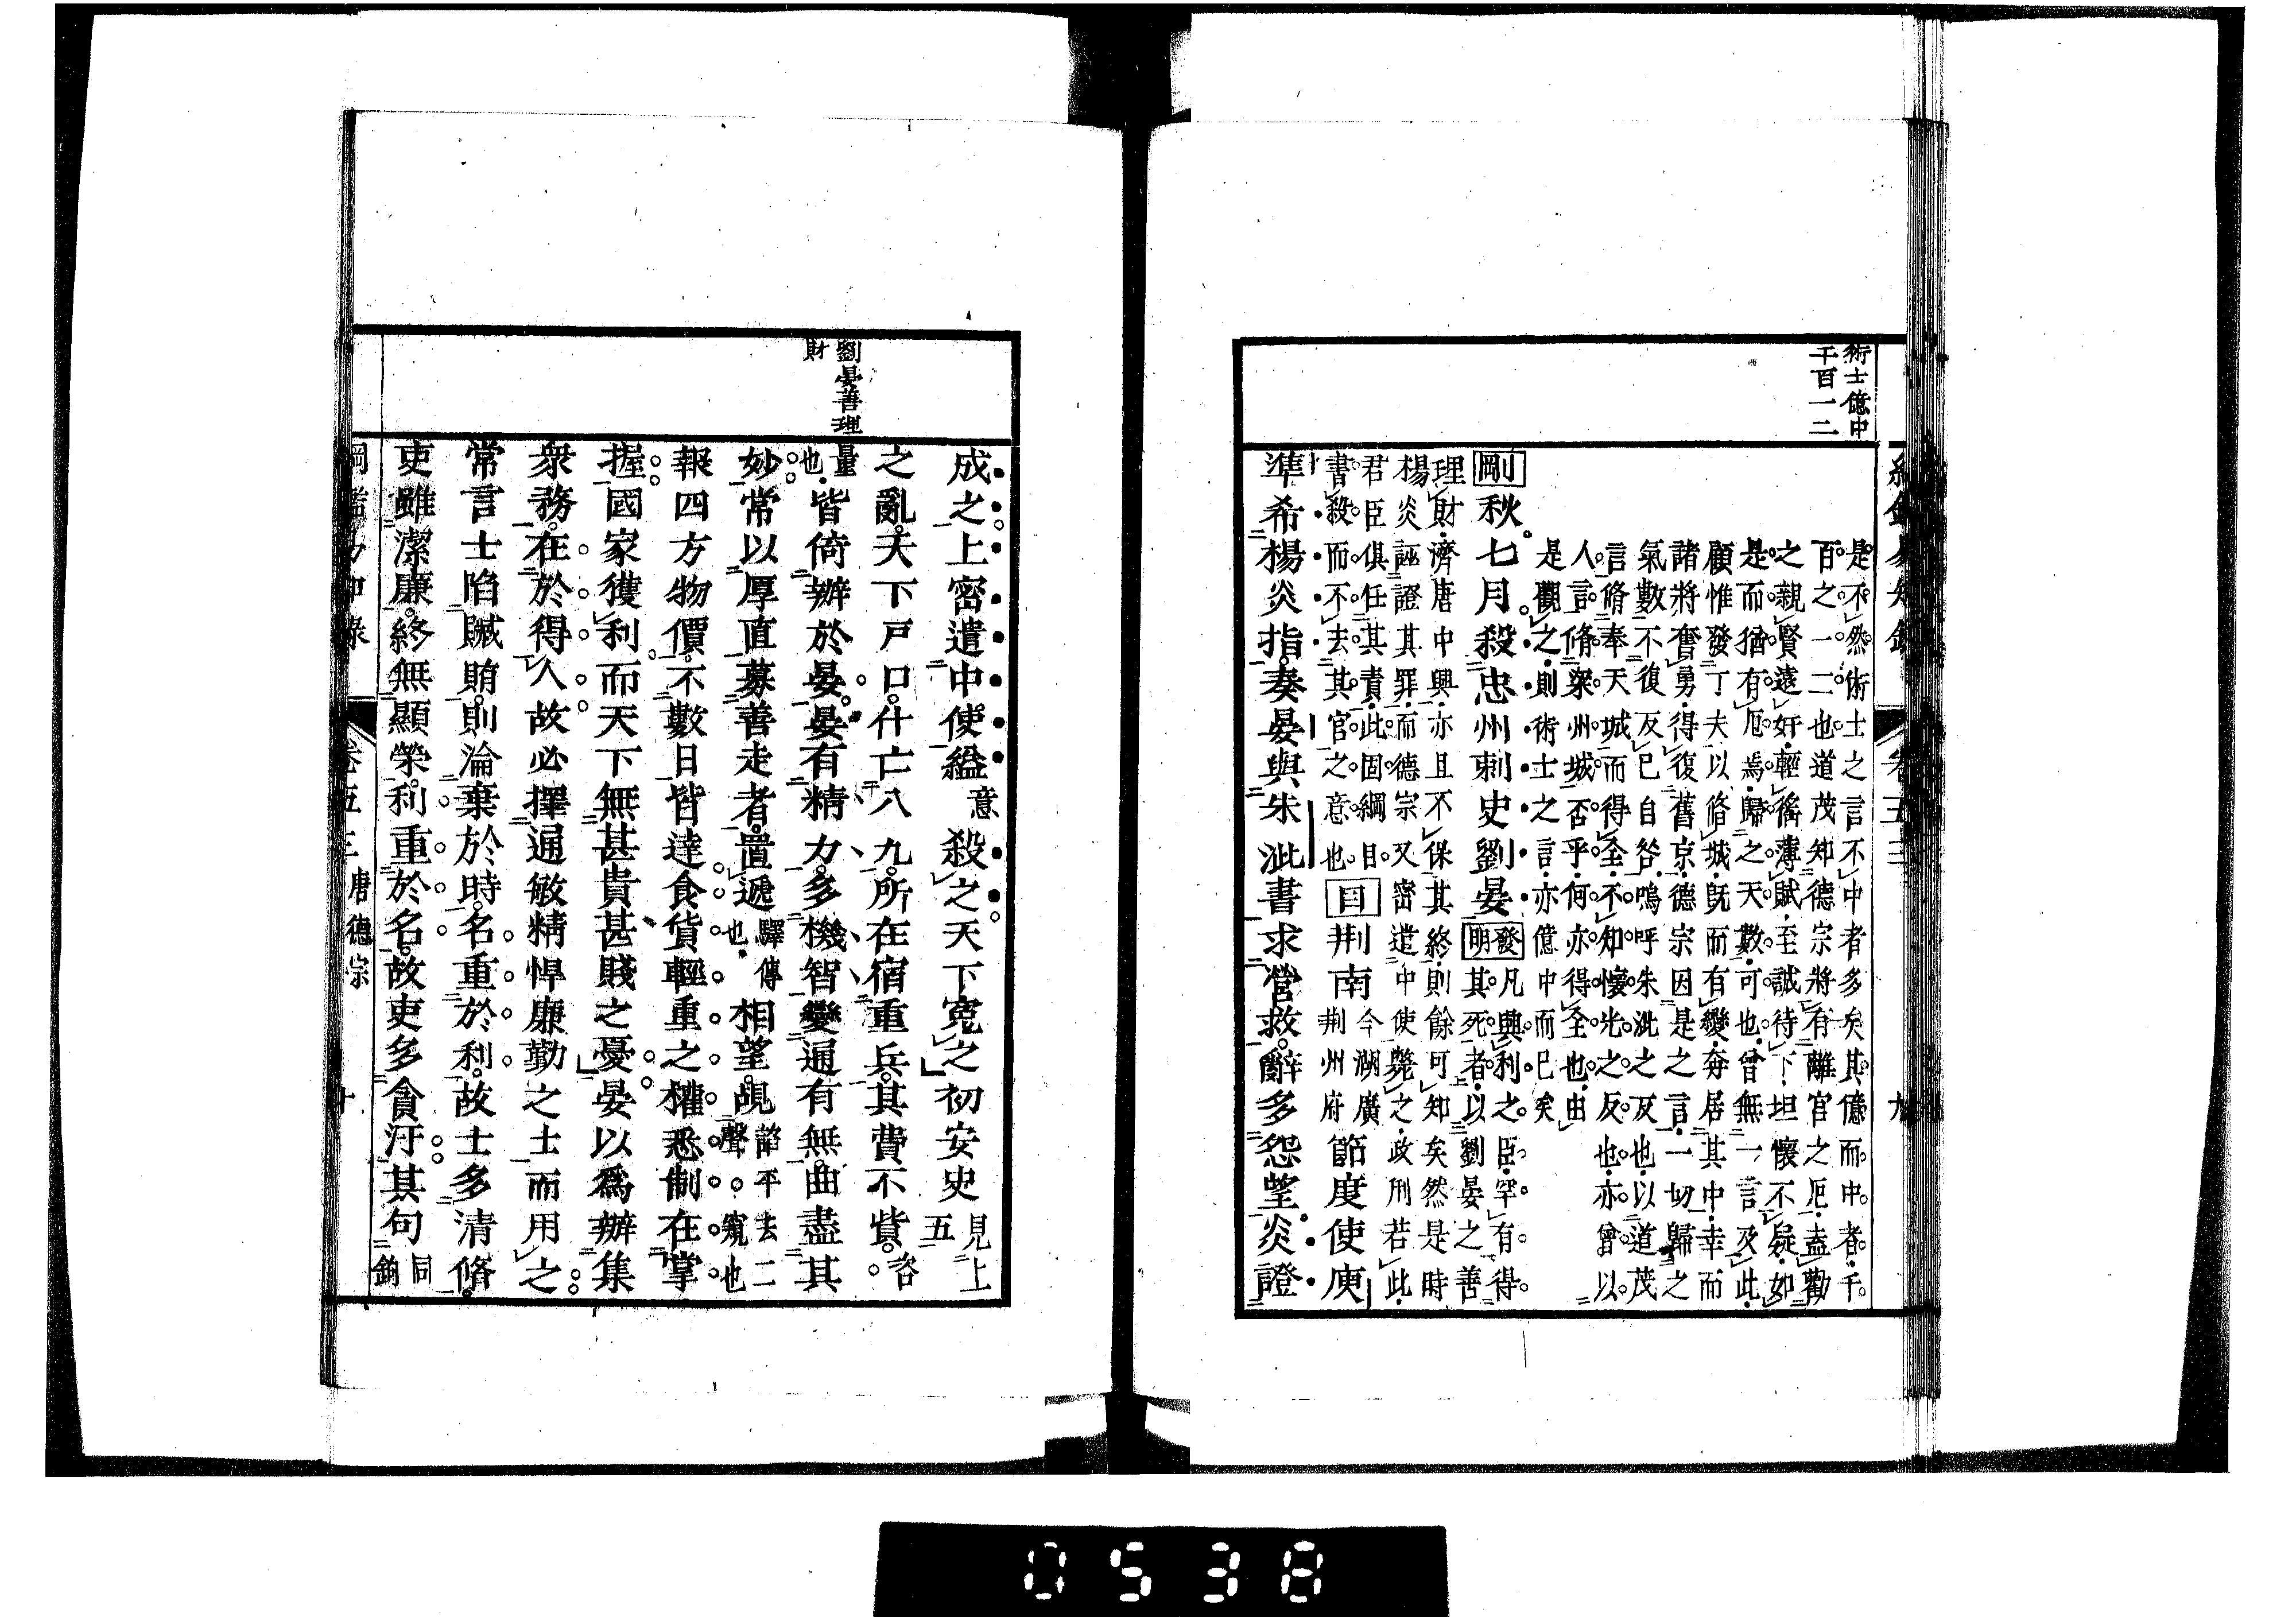 術士億中
千百一二
是不然術士之言不中者多矣其億而中者千
百之一二也道茂知德宗將有離宮之厄盍勸
之親賢遠奸輕徭薄賦至誠待下坦懷不疑如
是而猶有厄焉歸之天數可也曾無一言及此
顧惟發丁夫以脩城既而有變奔居其中幸而
諸將奮勇得復舊京德宗因是之言一切歸之
氣數不復反已自咎嗚呼朱泚之反也以道茂
言脩奉天城而得全不知懷光之反也亦曾以
人言脩梁州城否乎何亦得全也由
是觀之則術士之言亦億中而已矣
綱秋七月殺忠州刺史劉晏
發明凡興利之臣罕有得
其死者以劉晏之善
理財濟唐中興亦且不保其終則餘可知矣然是時
楊炎誣證其罪而德宗又密遣中使斃之政刑若此
君臣俱任其責此固綱目
書殺而不去其官之意也
目荊南
今湖廣
荊州府
節度使庾
準希楊炎指奏晏與朱泚書求營救辭多怨望炎證
卷五三
九
劉晏善理
財
成之上密遣中使縊
意
殺之天下冤之初安史
見上
五
之亂天下戶口什亡八九所在宿重兵其費不貲
咨
量
也
皆倚辦於晏晏有精力多機智變通有無曲盡其
妙常以厚直募善走者置遞
驛傳
也
相望覘
諂平去二
聲窺也
報四方物價不數日皆達食貨輕重之權悉制在掌
握國家獲利而天下無甚貴甚賤之憂晏以爲辦集
衆務在於得人故必擇通敏精悍廉勤之士而用之
常言士陷贓賄則淪棄於時名重於利故士多清脩
吏雖潔廉終無顯榮利重於名故吏多貪汙其句
同
鉤
卷五三
唐德宗
十
0538